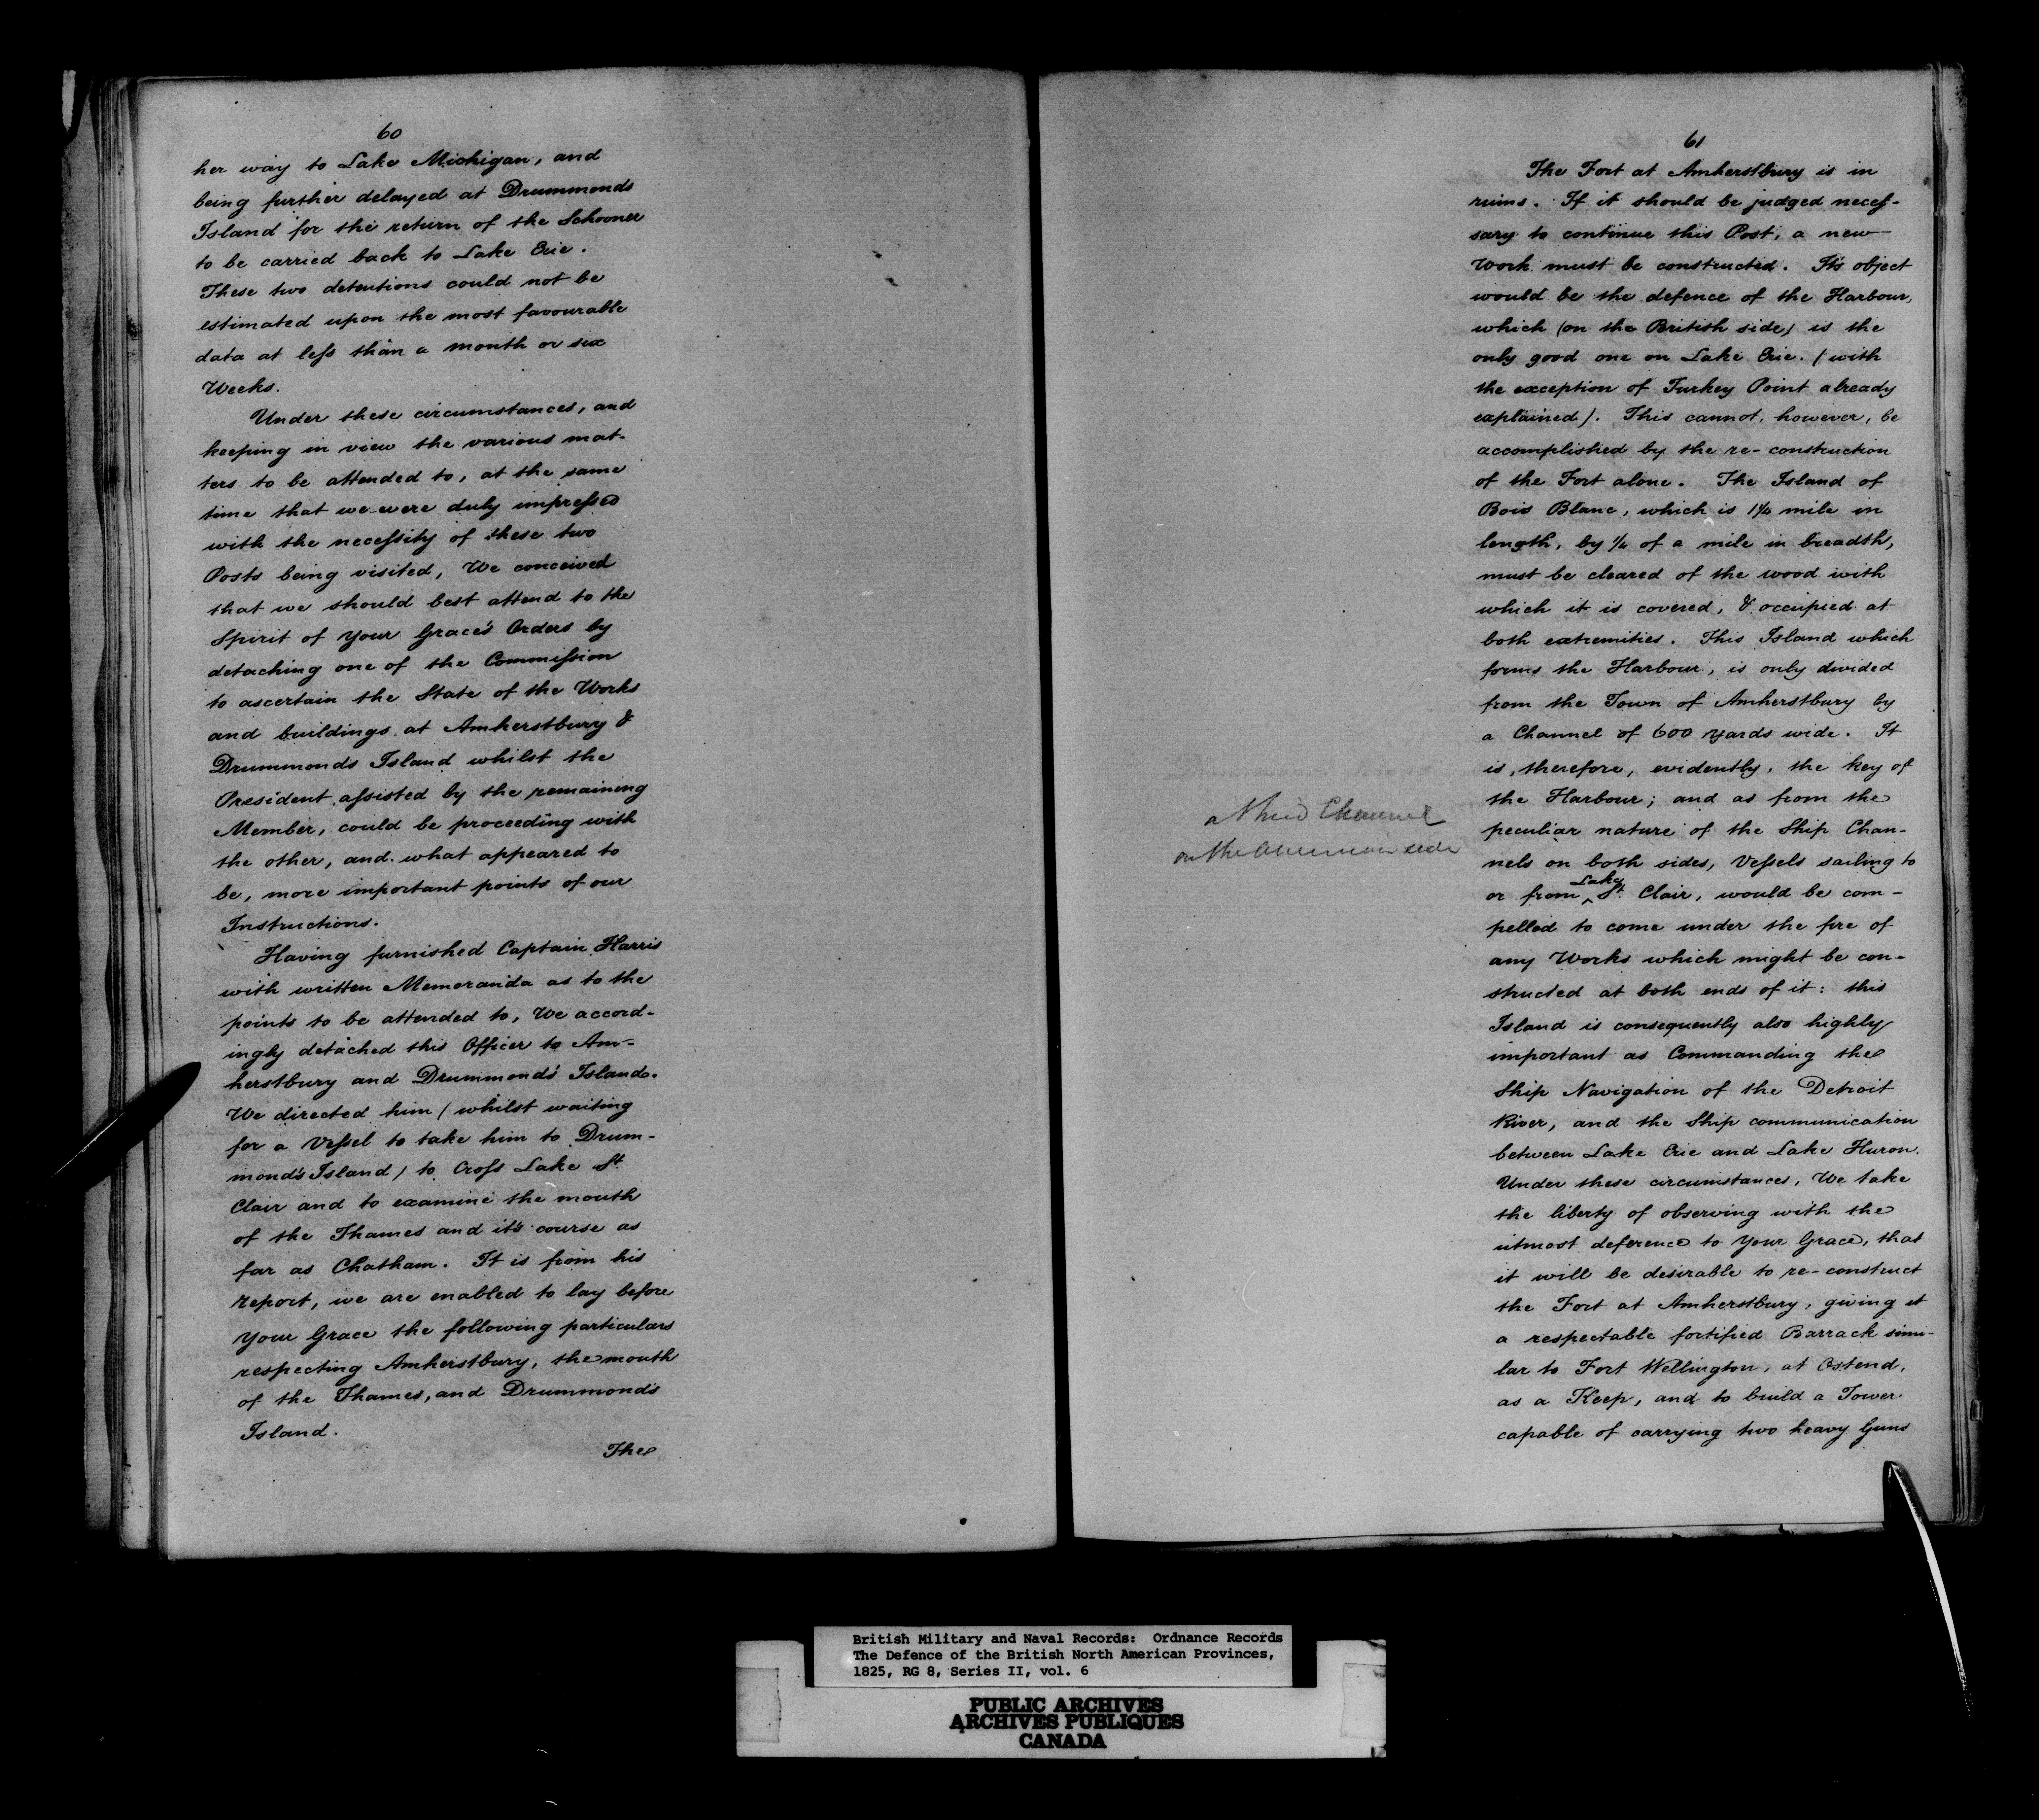 60
her way to Lake Michigan, and
being further delayed at Drummonds
Island for the return of the Schooner
to be carried back to Lake Erie.
These two detentions could not be
estimated upon the most favourable
data at leſs than a month or six
Weeks.
Under these circumstances, and
keeping in view the various mat-
ters to be attended to, at the same
time that we were duly impreſsed
with the neceſsity of these two
Posts being visited, We conceived
that we should best attend to the
Spirit of Your Grace's Orders by
detaching one of the Commiſsion
to ascertain the State of the Works
and buildings at Amherstbury &
Drummonds Island whilst the
President aſsisted by the remaining
Member, could be proceeding with
the other, and what appeared to
be, more important points of our
Instructions.
Having furnished Captain Harris
with written Memoranda as to the
points to be attended to, We accord-
ingly detached this Officer to Am-
herstbury and Drummond's Island.
We directed him (whilst waiting
for a Veſsel to take him to Drum-
mond's Island) to Croſs Lake St.
Clair and to examine the mouth
of the Thames and it's course as
far as Chatham. It is from his
report, we are enabled to lay before
Your Grace the following particulars
respecting Amherstbury, the mouth
of the Thames, and Drummond's
Island.
The
61
The Fort at Amherstbury is in
ruins. If it should be judged neceſ-
sary to continue this Post, a new
Work must be constructed. It's object
would be the defence of the Harbour,
which (on the British side) is the
only good one on Lake Erie. (with
the exception of Turkey Point already
explained). This cannot, however, be
accomplished by the re-construction
of the Fort alone. The Island of
Bois Blanc, which is 1¼ mile in
length, by ¼ of a mile in breadth,
must be cleared of the wood with
which it is covered, & occupied at
both extremities. This Island which
forms the Harbour, is only divided
from the Town of Amherstbury by
a Channel of 600 yards wide. It
is, therefore, evidently, the key of
the Harbour; and as from the
peculiar nature of the Ship Chan-
nels on both sides, Veſsels sailing to
or from Lake St. Clair, would be com-
pelled to come under the fire of
any Works which might be con-
structed at both ends of it: this
Island is consequently also highly
important as Commanding the
Ship Navigation of the Detroit
River, and the Ship communication
between Lake Erie and Lake Huron.
Under these circumstances, We take
the liberty of observing with the
utmost deference to Your Grace, that
it will be desirable to re-construct
the Fort at Amherstbury, giving it
a respectable fortified Barrack simi-
lar to Fort Wellington, at Ostend,
as a Keep, and to build a Tower
capable of carrying two heavy Guns
a third Channel
on the American side
British Military and Naval Records: Ordnance Records
The Defence of the British North American Provinces,
1825, RG 8, Series II, vol. 6
PUBLIC ARCHIVES
ARCHIVES PUBLIQUES
CANADA